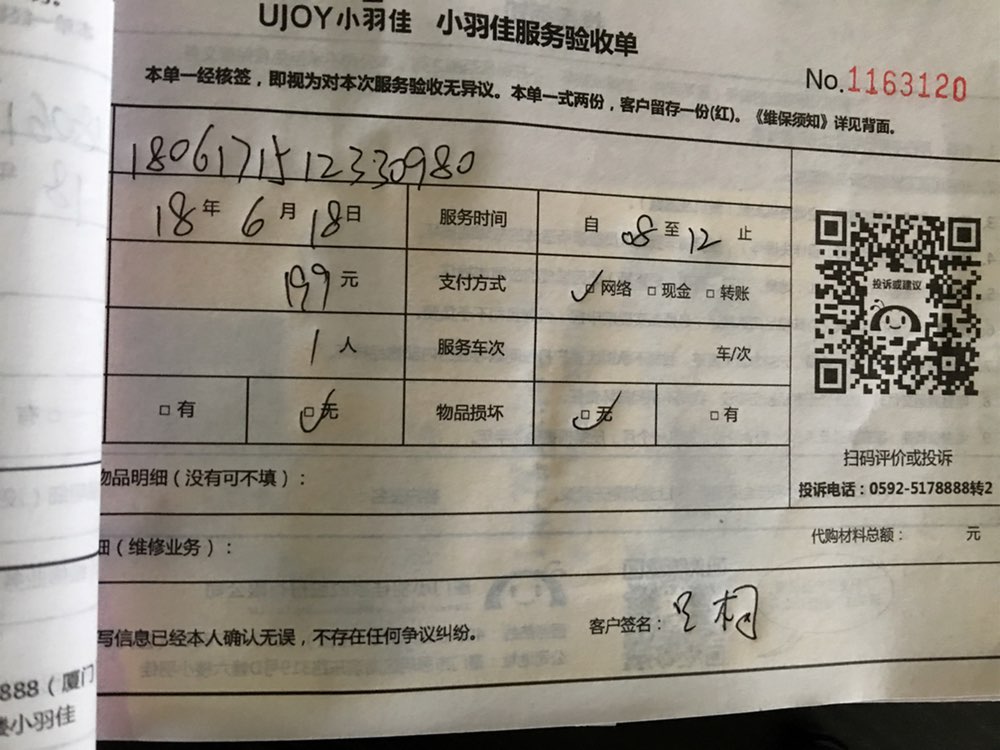 UJOY小羽佳 小羽佳服务验收单
No.1163120
本单一经核签，即视为对本次服务验收无异议。本单一式两份，客户留存一份(红)。《维保须知》详见背面。
1806171512330980
18年 6月 18日 服务时间 自 08 至 12 止
199元 支付方式 ☑网络 □现金 □转账
1人 服务车次 车/次
□有 ☑无 物品损坏 ☑无 □有
投诉或建议
扫码评价或投诉
投诉电话：0592-5178888转2
物品明细（没有可不填）：
代购材料总额： 元
细（维修业务）：
写信息已经本人确认无误，不存在任何争议纠纷。 客户签名：
888（厦门
楼小羽佳